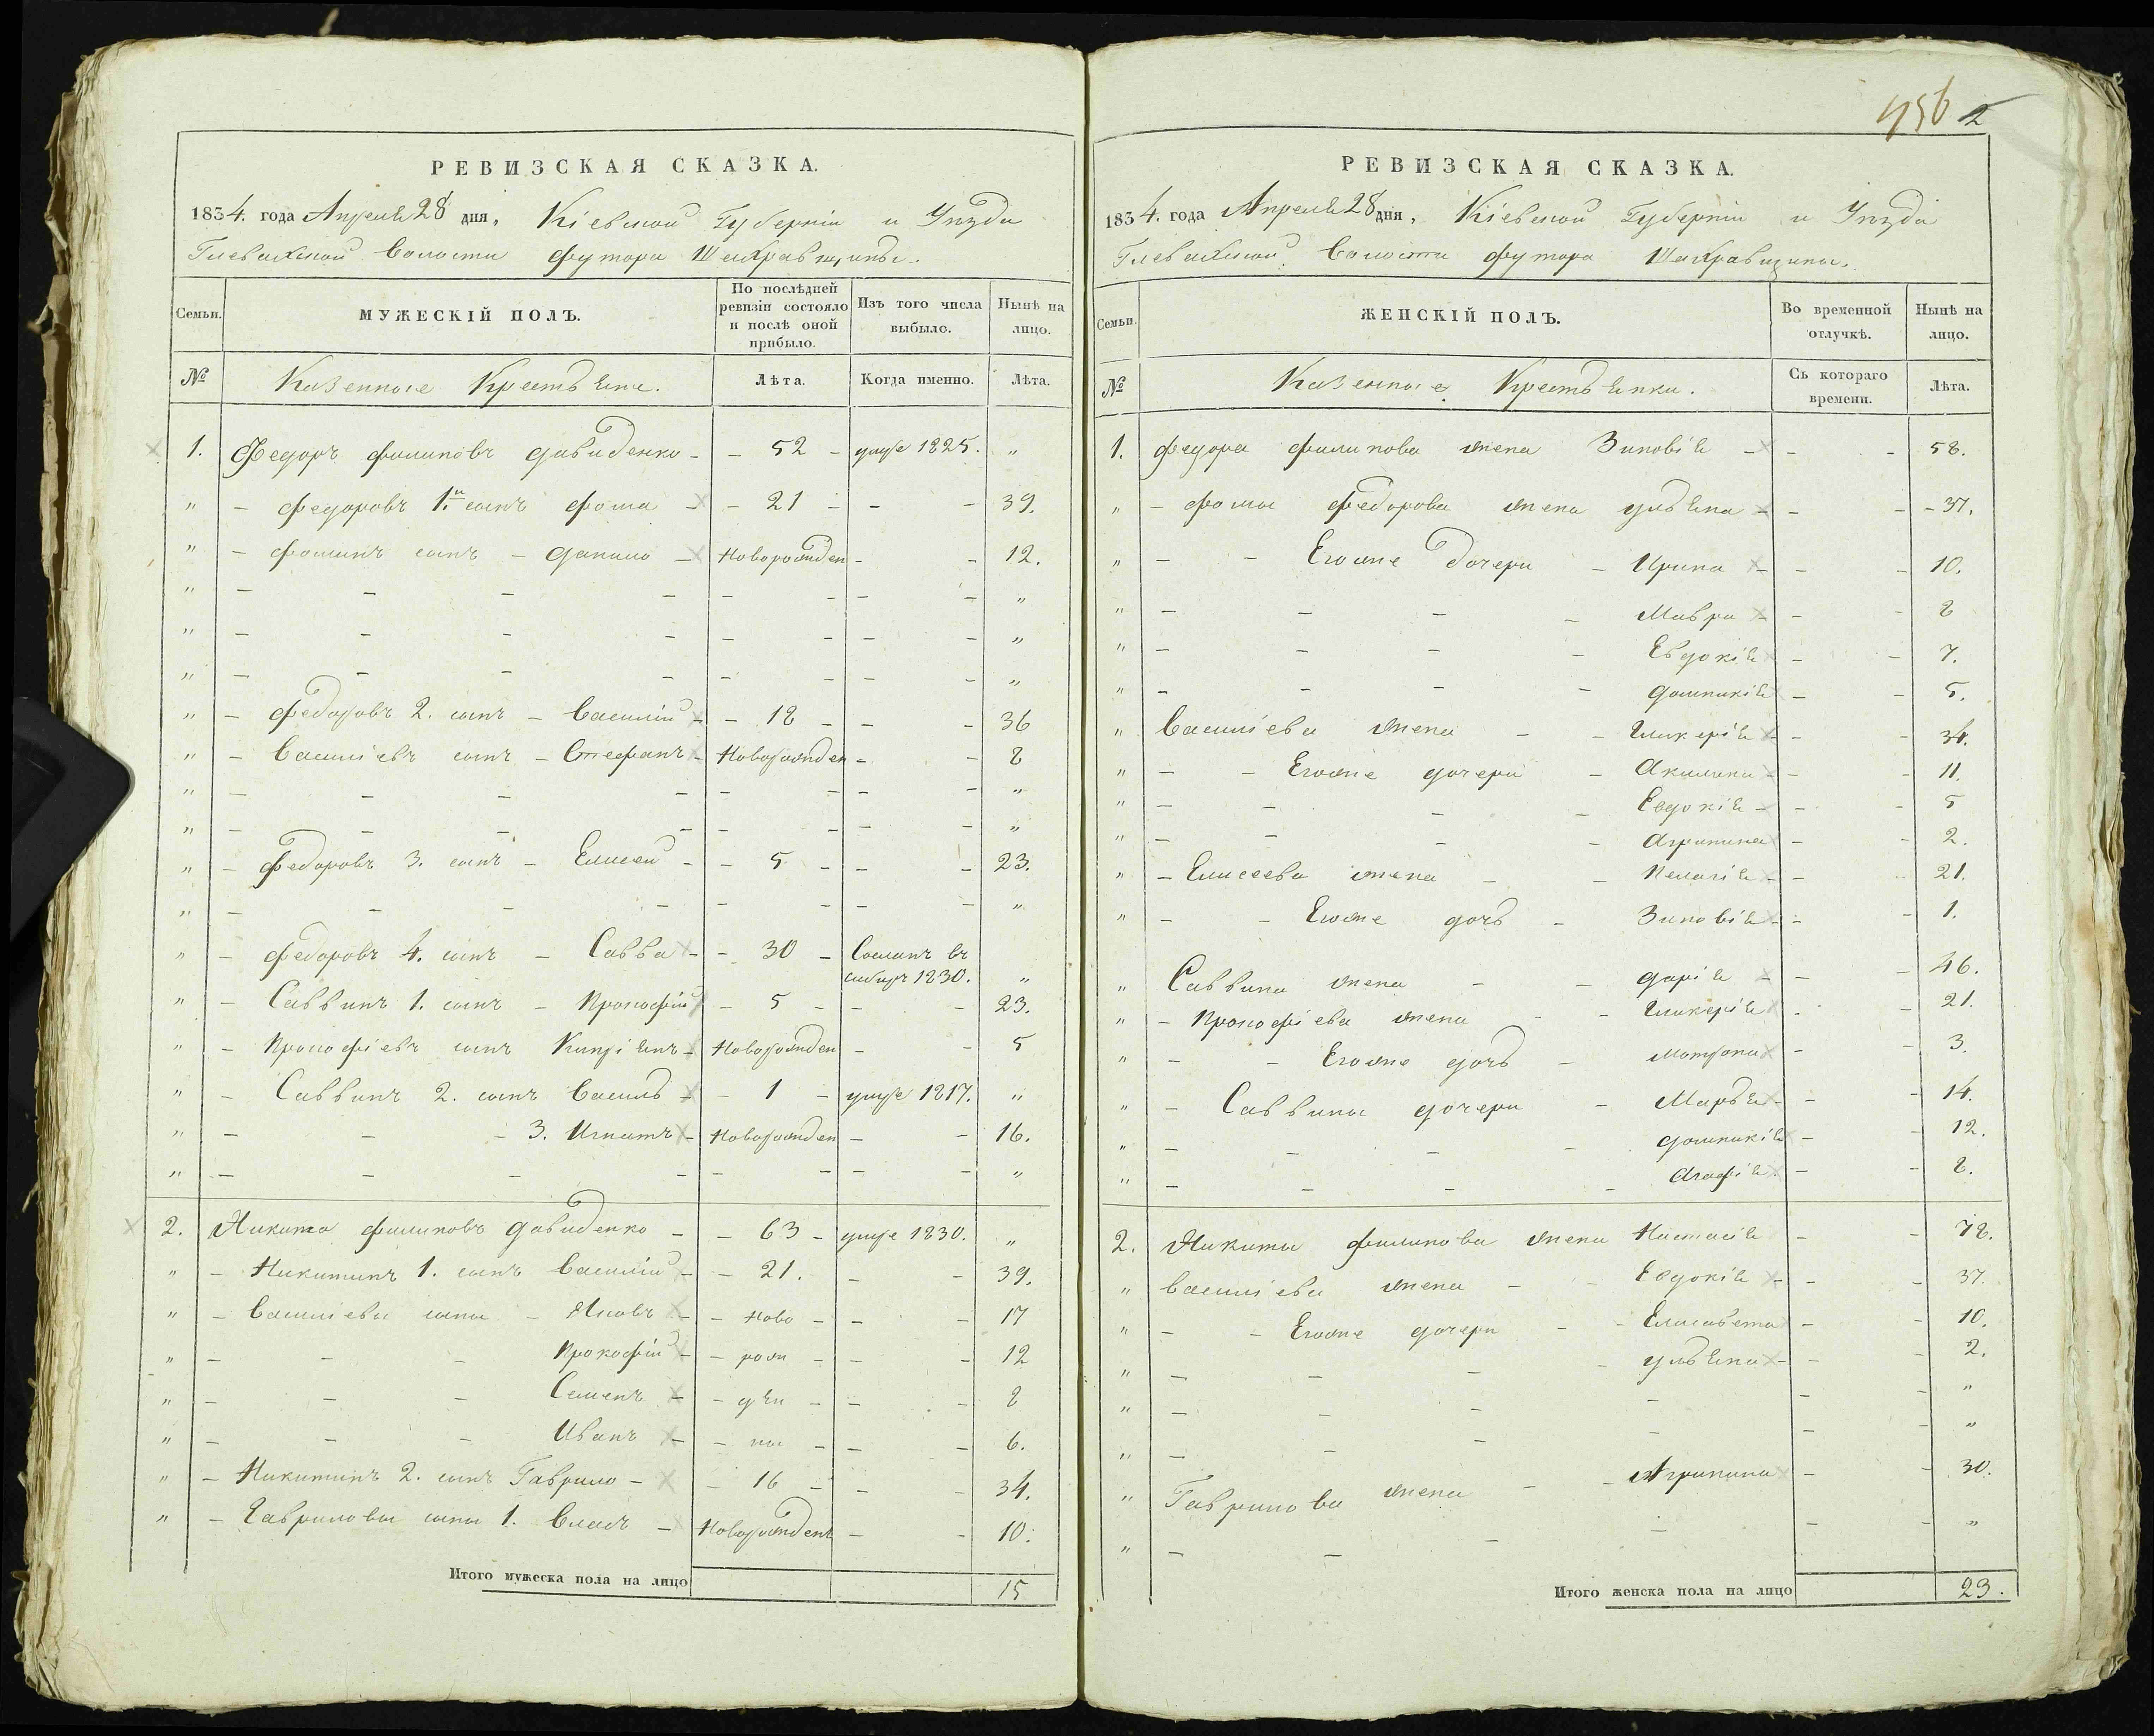 456 2
РЕВИЗСКАЯ СКАЗКА.
1834. года Апреля 28 дня, Кіевской Губерніи и Уѣзда
Глевахской Волости футора Шахравщины.
Семьи. МУЖЕСКІЙ ПОЛЪ. По послѣдней ревизіи состояло и послѣ оной прибыло. Изъ того числа выбыло. Нынѣ на лицо.
№ Казенные Крестьяне. Лѣта. Когда именно. Лѣта.
1. Федоръ филиповъ давиденко - - 52 - умре 1825. "
" - федоровъ 1й сынъ фома - - 21 - - - 39.
" - фоминъ сынъ - данило - Новорожден - - 12.
" - - - - - - - - "
" - - - - - - - - "
" - - - - - - - - "
" - федоровъ 2. сынъ - Василій - - 18 - - - 36
" - Василіевъ сынъ - Стефанъ - Новорожден - - 8
" - - - - - - - - "
" - - - - - - - - "
" - федоровъ 3. сынъ - Елисей - - 5 - - - 23.
" - - - - - - - - "
" - федоровъ 4. сынъ - Савва - - 30 - Сосланъ въ
сибиръ 1830. "
" - Саввинъ 1. сынъ - Прокофій - 5 - - - 23.
" - Прокофіевъ сынъ Кипріянъ - Новорожден - - 5
" - Саввинъ 2. сынъ Василь - - 1 - умре 1817. "
" - - - 3. Игнатъ - Новорожден - - 16.
" - - - - - - - - "
2. Никита филиповъ давиденко - - 63 - умре 1830. "
" - Никитинъ 1. сынъ Василій - - 21. - - 39.
" - Василіевы сыны - Яковъ - - Ново - - - 17
" - - - Прокофій - - рож - - - 12
" - - - Семенъ - - дѣн - - - 8
" - - - Иванъ - - ны - - - 6.
" - Никитинъ 2. сынъ Гаврило - - 16 - - - 34.
" - Гавриловы сыны 1. Власъ - Новорожденъ - - 10.
Итого мужеска пола на лицо 15
РЕВИЗСКАЯ СКАЗКА.
1834. года Апреля 28 дня, Кіевской Губерніи и Уѣзда
Глевахской Волости футора Шахравщины.
Семьи. ЖЕНСКІЙ ПОЛЪ. Во временной отлучкѣ. Нынѣ на лицо.
№ Казенные Крестьянки. Съ котораго времени. Лѣта.
1. федора филипова жена Зиновія - - - 58.
" - фомы федорова жена ульяна - - - 37.
" - - Егоже дочери - Ирина - - - 10.
" - - - - Мавра - - - 8
" - - - - Евдокія - - 7.
" - - - - домникія - - 5.
" Василіева жена - - Гликерія - - - 34.
" - - Егоже дочери - Акилина - - - 11.
" - - - - Евдокія - - - 5
" - - - - Агрипина - - 2.
" - Елисеева жена - - Пелагія - - 21.
" - - Егоже дочь - Зиновія - - - 1.
" Саввина жена - - дарія - - - 46.
" - Прокофіева жена - - Гликерія - - 21.
" - - Егоже дочь - Матрона - - 3.
" - Саввины дочери - Марья - - - 14.
" - - - - домникія - - 12.
" - - - - Агафія - - 8.
2. Никиты филипова жена Настасія - - 78.
" Василіева жена - - Евдокія - - 37.
" - - Егоже дочери - - Елисавета - - 10.
" - - - - ульяна - - - 2.
" - - - - - - "
" - - - - - - "
" Гаврилова жена - - Агрипина - - 30.
" - - - - - - "
Итого женска пола на лицо 23.